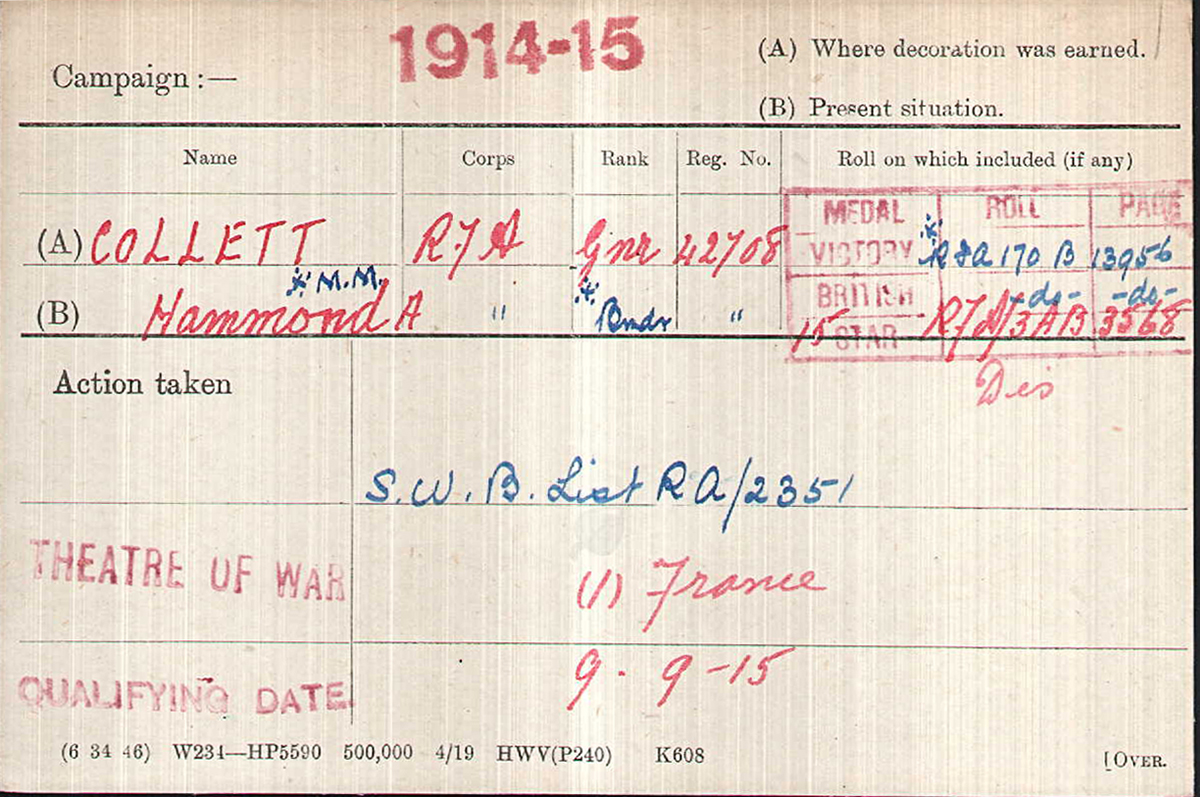 1914-15
Campaign :—
(A) Where decoration was earned.
(B) Present situation.
Name Corps Rank Reg. No. Roll on which included (if any)
MEDAL ROLL PAGE
(A) COLLETT R.F.A Gnr 42708 VICTORY * RFA 170 B 13956
* M.M.
BRITISH -do- -do-
(B) Hammond A " * Bmdr " 15 STAR RFA/3AB 3568
Dis
Action taken
S.W.B. List RA/2351
THEATRE OF WAR (1) France
QUALIFYING DATE 9.9-15
(6 34 46) W234—HP5590 500,000 4/19 HWV(P240) K608 [OVER.